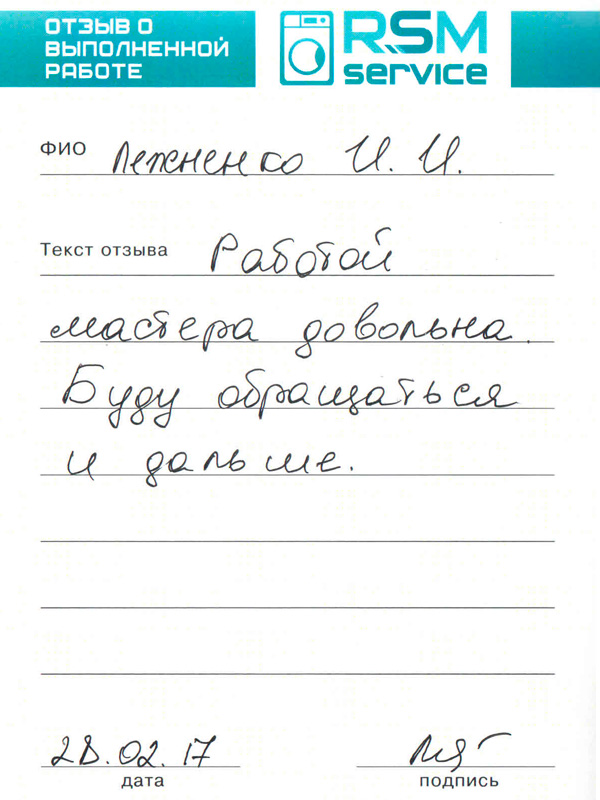 ОТЗЫВ О
ВЫПОЛНЕННОЙ
РАБОТЕ
RSM
service
ФИО Лежненко И. И.
Текст отзыва Работой
мастера довольна.
Буду обращаться
и дальше.
28.02.17
дата
подпись